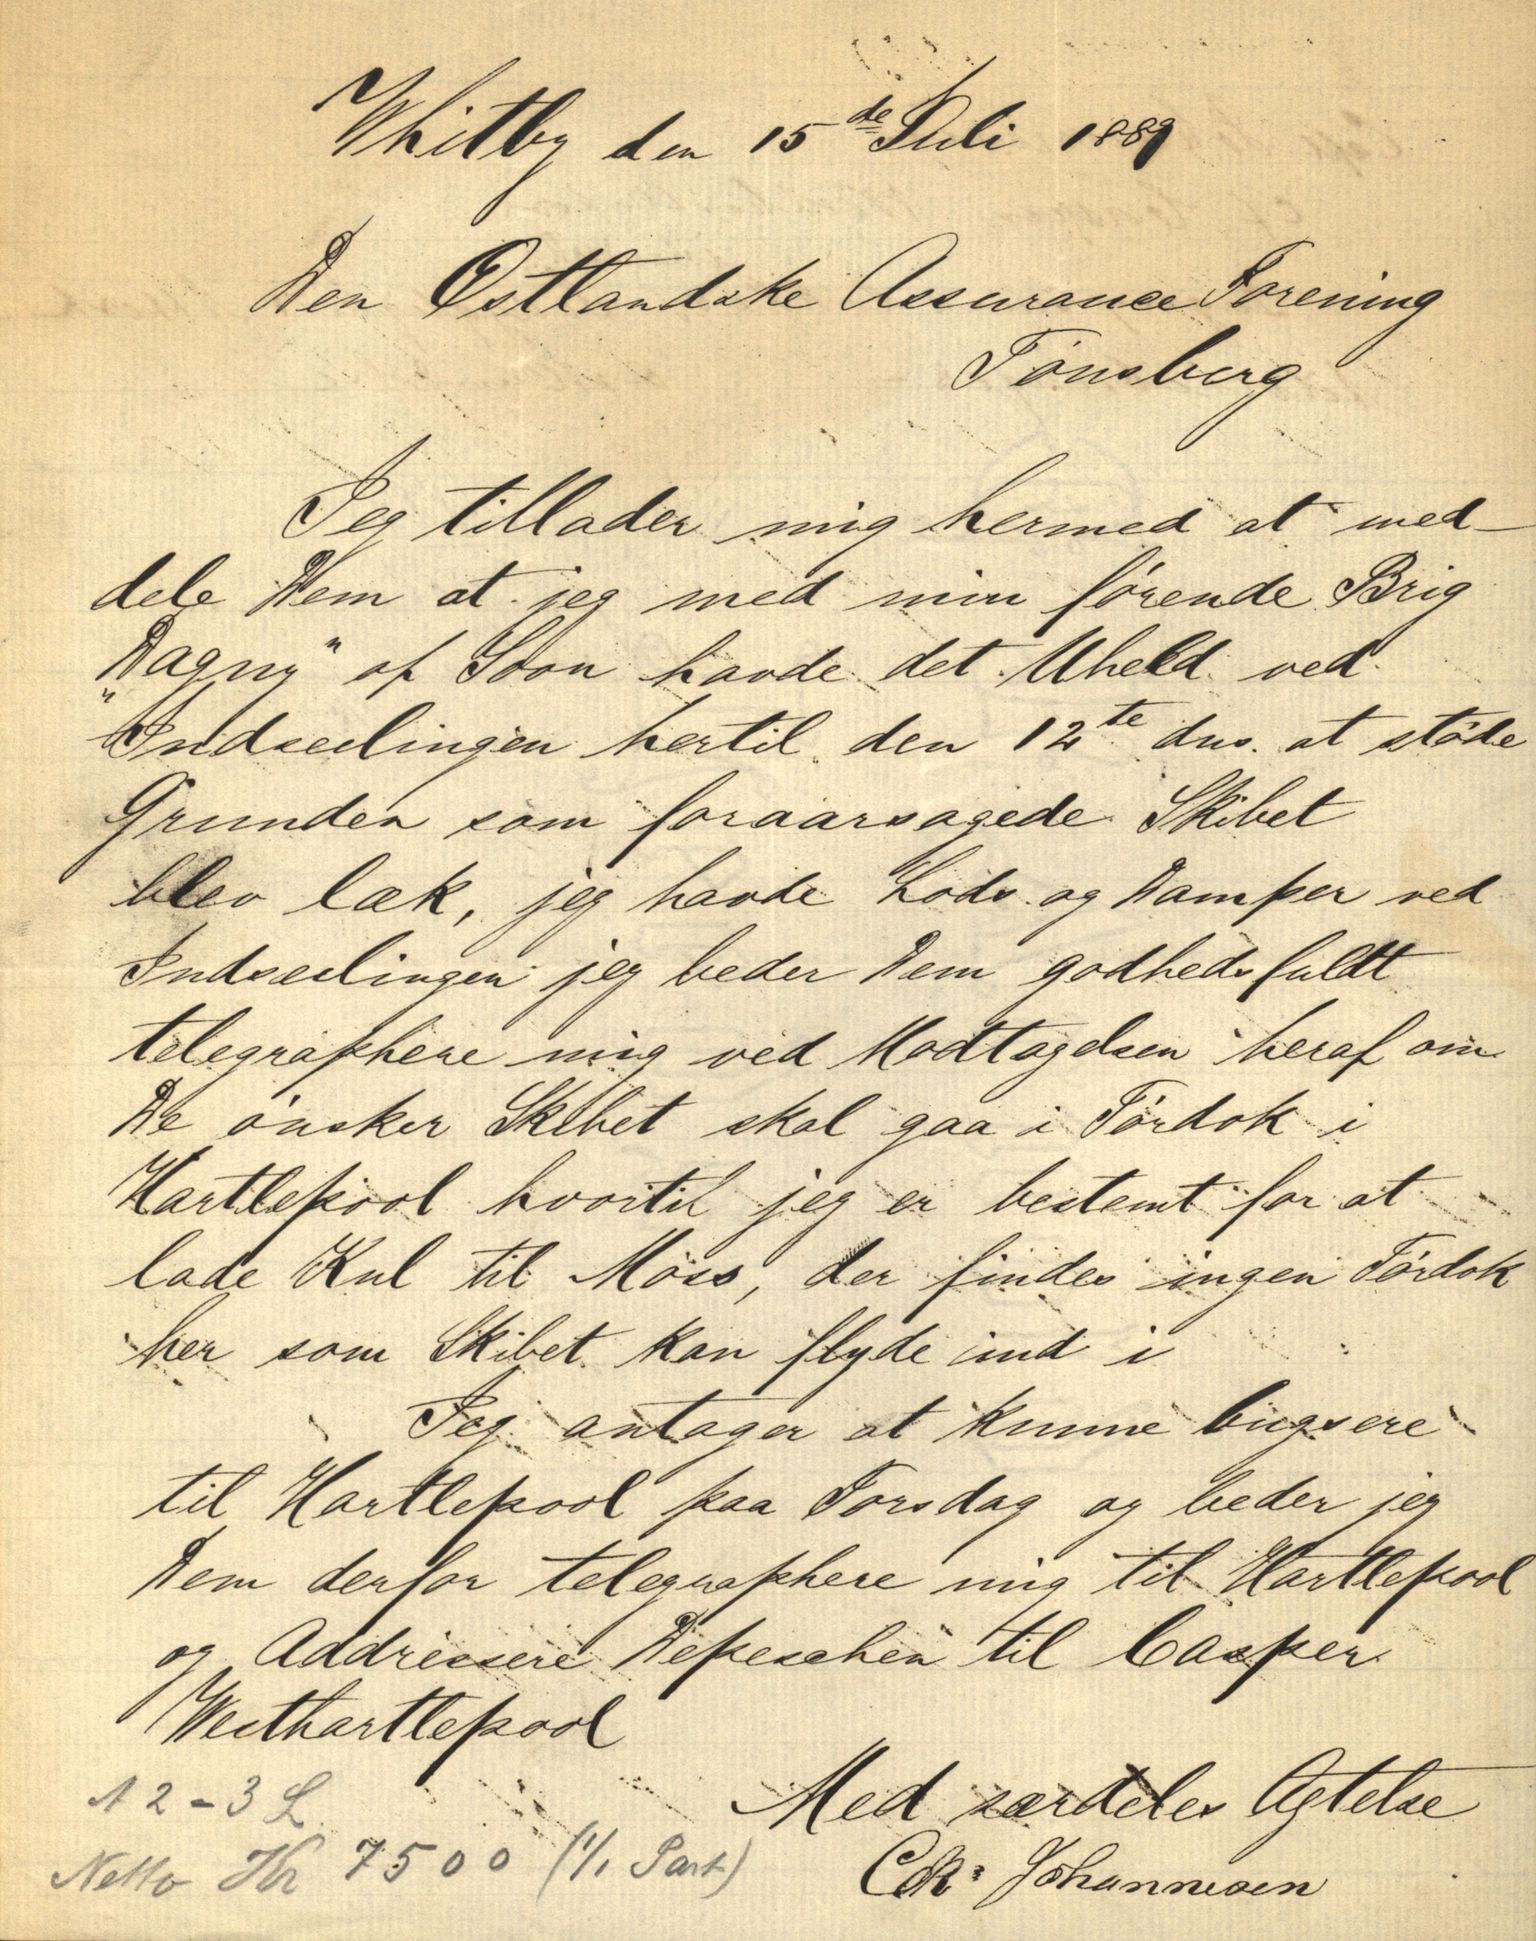 Whitby den 15de Juli 1889
Den Østlandske Assurance Forening
Tønsberg
Jeg tillader mig hermed at med-
dele Dem at jeg med min førende Brig
"Dagny" af Soon havde det Uheld ved
Indseilingen hertil den 12te dns. at støde
Grunden som foraarsagede Skibet
blev læk, jeg havde Lods og Damper ved
Indseilingen jeg beder Dem godhedsfuldt
telegraphere mig ved Modtagelsen heraf om
De ønsker Skibet skal gaa i Tørdok i
Hartlepool hvortil jeg er bestemt for at
lade Kul til Moss, der findes ingen Tørdok
her som Skibet kan flyde ind i
Jeg antager at kunne bugsere
til Hartlepool paa Torsdag og beder jeg
Dem derfor telegraphere mig til Hartlepool
og Addressere Depeschen til Casper
Westhartlepool
Med særdeles Agtelse
Chr. Johannesen
A 2 - 3 L
Netto Kr 7500 (1/1 Part)